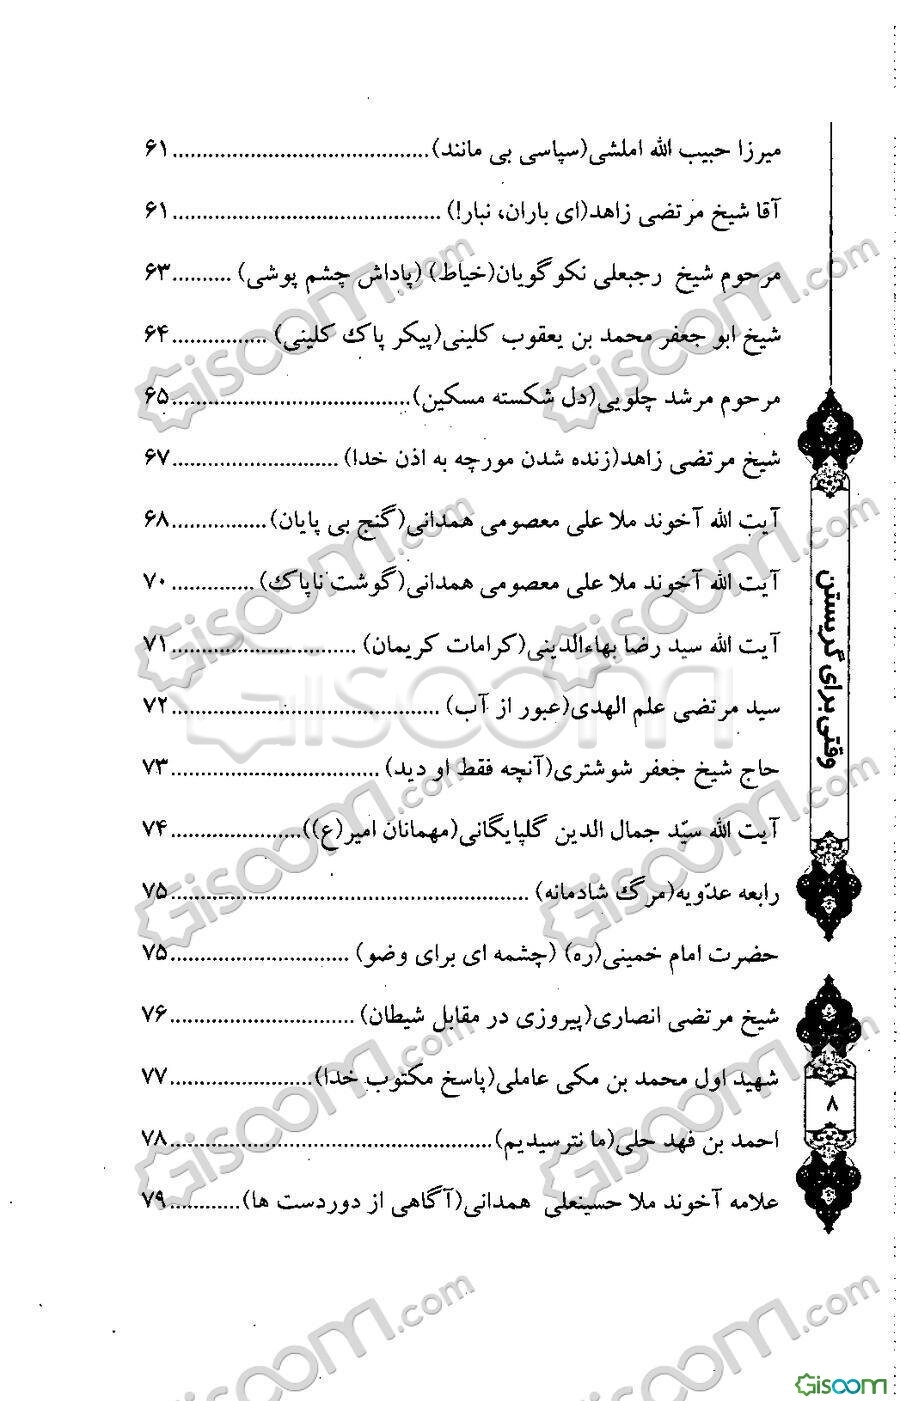 میرزا حبیب الله املشی(سپاسی بی مانند)...........................................۶۱
آقا شیخ مرتضی زاهد(ای باران، نبار!) .............................................۶۱
مرحوم شیخ رجبعلی نکوگویان(خیاط) (پاداش چشم پوشی) ..........۶۳
شیخ ابو جعفر محمد بن یعقوب کلینی(پیکر پاک کلینی) ................۶۴
مرحوم مرشد چلویی(دل شکسته مسکین)........................................۶۵
شیخ مرتضی زاهد(زنده شدن مورچه به اذن خدا) ............................۶۷
آیت الله آخوند ملا علی معصومی همدانی(گنج بی پایان)................۶۸
آیت الله آخوند ملا علی معصومی همدانی(گوشت ناپاک) ..............۷۰
آیت الله سید رضا بهاءالدینی(کرامات کریمان) ...............................۷۱
سید مرتضی علم الهدی(عبور از آب) .............................................۷۲
حاج شیخ جعفر شوشتری(آنچه فقط او دید) ...................................۷۳
آیت الله سیّد جمال الدین گلپایگانی(مهمانان امیر(ع))......................۷۴
رابعه عدّویه(مرگ شادمانه) ............................................................۷۵
حضرت امام خمینی(ره) (چشمه ای برای وضو) ..............................۷۵
شیخ مرتضی انصاری(پیروزی در مقابل شیطان) ...............................۷۶
شهید اول محمد بن مکی عاملی(پاسخ مکتوب خدا)........................۷۷
احمد بن فهد حلی(ما نترسیدیم)......................................................۷۸
علامه آخوند ملا حسینعلی همدانی(آگاهی از دوردست ها)............۷۹
وقتی برای گریستن
۸
Giscom.com
Giscom
Gisoom